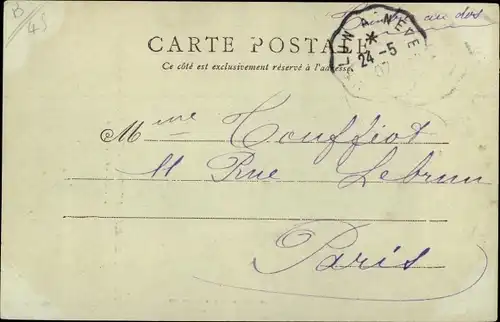 B
45
au dos
CARTE POSTALE
Ce côté est exclusivement réservé à l'adresse.
LUN A NEVE
*
24 -5
07
Mme Houffiot
11 Rue Lebrun
Paris